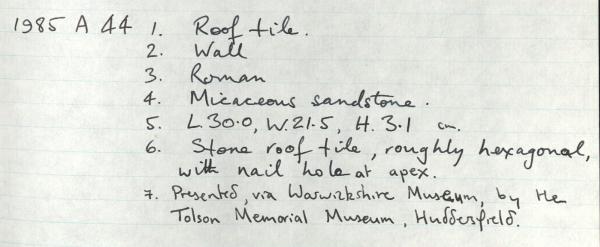 1985 A 44 1. Roof tile.
2. Wall
3. Roman
4. Micaceous sandstone.
5. L.30.0, W.21.5, H.3.1 cm.
6. Stone roof tile, roughly hexagonal,
with nail hole at apex.
7. Presented, via Warwickshire Museum, by the
Tolson Memorial Museum, Huddersfield.